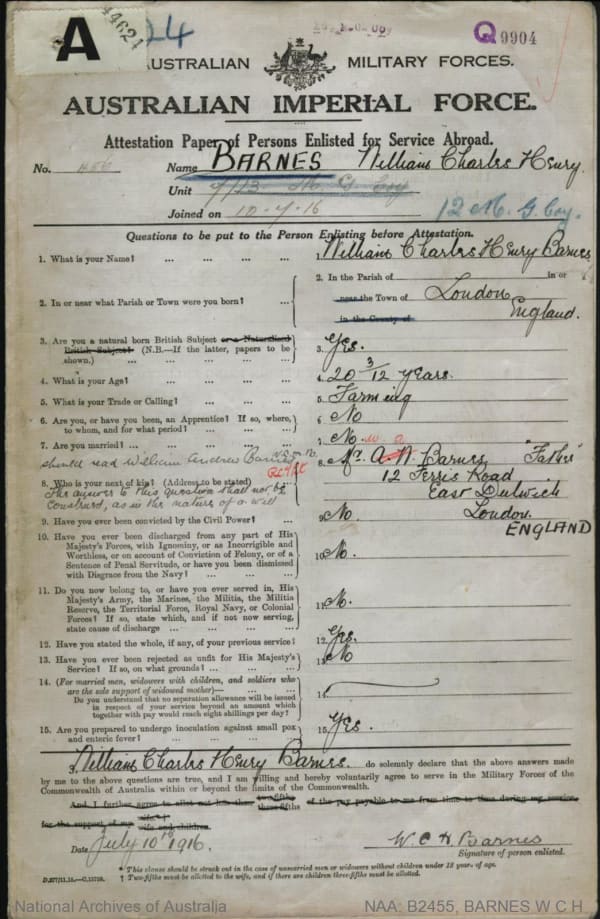 A
24
44624
Q 9904
AUSTRALIAN MILITARY FORCES.
AUSTRALIAN IMPERIAL FORCE.
Attestation Paper of Persons Enlisted for Service Abroad.
No. 456 Name BARNES William Charles Henry.
Unit 7/13 M. G. Coy 12 M. G. Coy.
Joined on 10-7-16
Questions to be put to the Person Enlisting before Attestation.
1. What is your Name? ... ... ... ... 1. William Charles Henry Barnes
2. In or near what Parish or Town were you born? ... 2. In the Parish of in or
near the Town of London
in the County of England.
3. Are you a natural born British Subject or a Naturalised
British Subject? (N.B.—If the latter, papers to be
shown.) ... ... ... ... 3. Yes.
4. What is your Age? ... ... ... ... 4. 20 3/12 years.
5. What is your Trade or Calling? ... ... ... 5. Farming
6. Are you, or have you been, an Apprentice? If so, where,
to whom, and for what period? ... ... ... 6. No
7. Are you married? ... ... ... ... 7. No
should read William Andrew Barnes
8. Who is your next of kin? (Address to be stated) ... 8. Mr. A. W. Barnes, "Father"
W. A
12 Ferris Road
East Dulwich
London.
ENGLAND
The answer to this question shall not be
construed, as in the nature of a will
9. Have you ever been convicted by the Civil Power? ... 9. No.
10. Have you ever been discharged from any part of His
Majesty's Forces, with Ignominy, or as Incorrigible and
Worthless, or on account of Conviction of Felony, or of a
Sentence of Penal Servitude, or have you been dismissed
with Disgrace from the Navy? ... ... ... 10. No.
11. Do you now belong to, or have you ever served in, His
Majesty's Army, the Marines, the Militia, the Militia
Reserve, the Territorial Force, Royal Navy, or Colonial
Forces? If so, state which, and if not now serving,
state cause of discharge ... ... ... ... 11. No.
12. Have you stated the whole, if any, of your previous service? 12. Yes.
13. Have you ever been rejected as unfit for His Majesty's
Service? If so, on what grounds? ... ... ... 13. No
14. (For married men, widowers with children, and soldiers who
are the sole support of widowed mother)— ... ...
Do you understand that no separation allowance will be issued
in respect of your service beyond an amount which
together with pay would reach eight shillings per day? 14.
15. Are you prepared to undergo inoculation against small pox
and enteric fever? ... ... ... ... 15. Yes.
I, William Charles Henry Barnes. do solemnly declare that the above answers made
by me to the above questions are true, and I am willing and hereby voluntarily agree to serve in the Military Forces of the
Commonwealth of Australia within or beyond the limits of the Commonwealth.
And I further agree to allot not less than two-fifths three-fifths of the pay payable to me from time to time during my service
for the support of my wife* wife and children
Date July 10th 1916. W. C. H. Barnes
Signature of person enlisted.
* This clause should be struck out in the case of unmarried men or widowers without children under 18 year of age.
† Two-fifths must be allotted to the wife, and if there are children three-fifths must be allotted.
D.277/11.15.—C.13739.
National Archives of Australia NAA: B2455, BARNES W C H